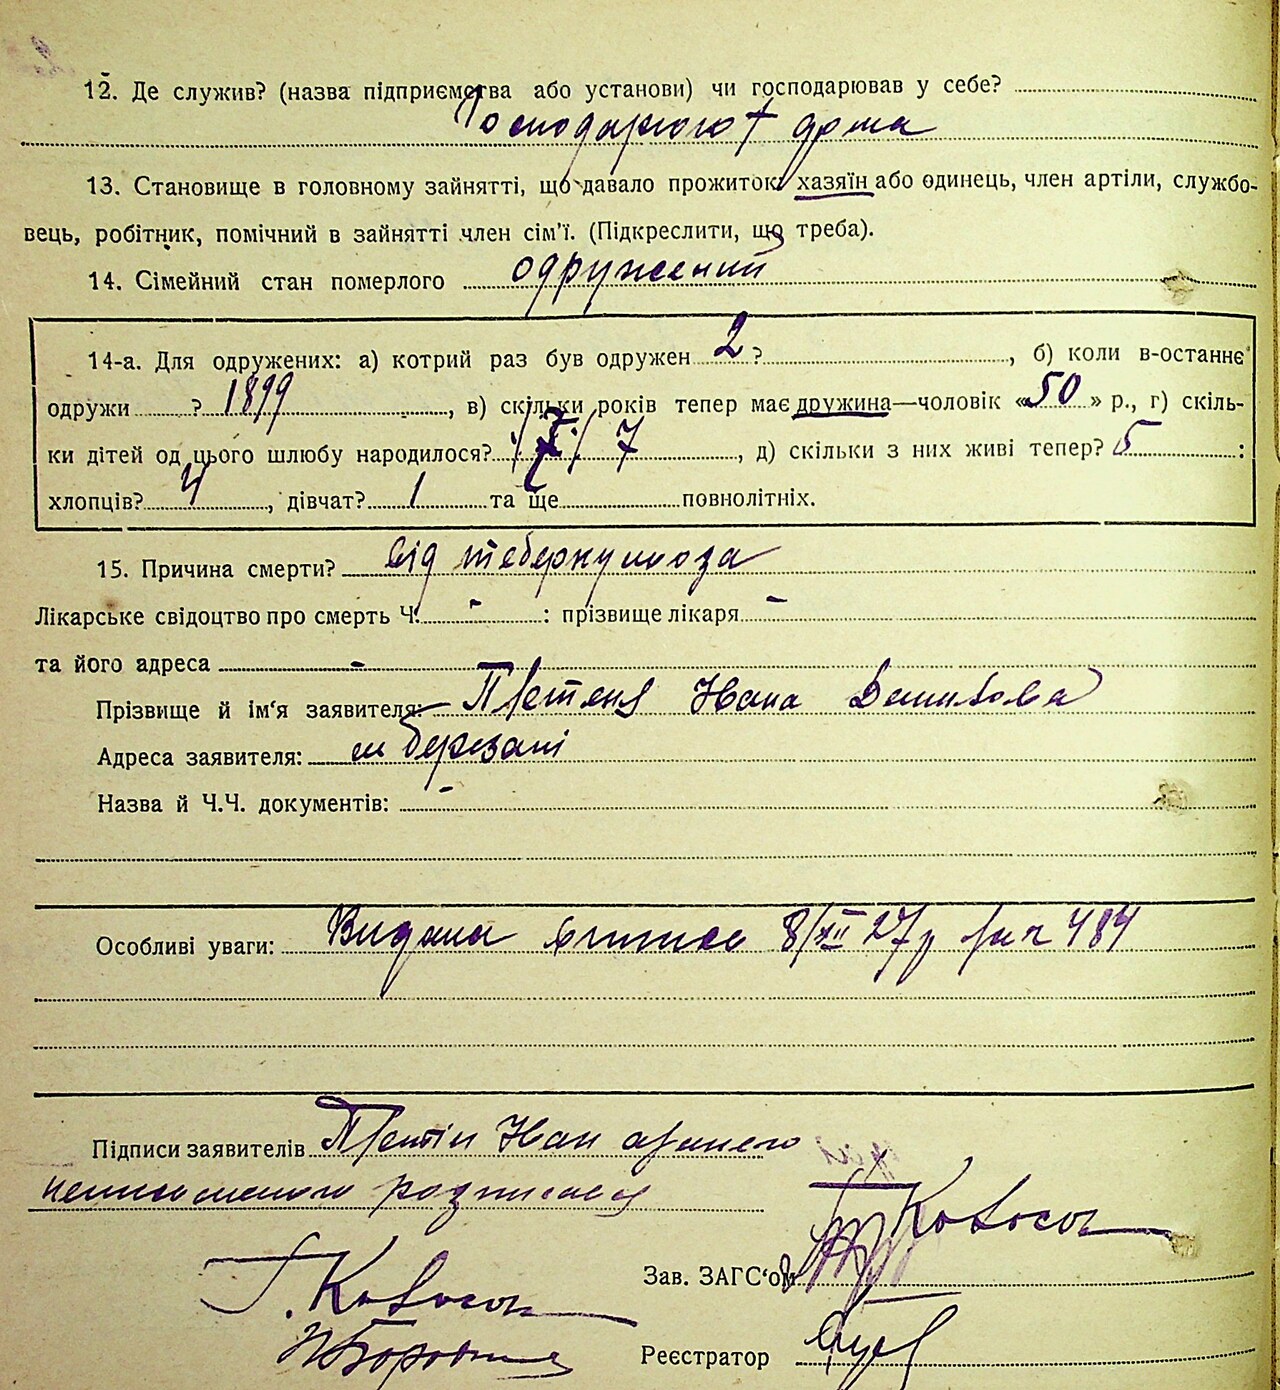 12. Де служив? (назва підприємства або установи) чи господарював у себе?
Господарюют дома
13. Становище в головному зайнятті, що давало прожиток: хазяїн або одинець, член артіли, службо-
вець, робітник, помічний в зайнятті член сім'ї. (Підкреслити, що треба).
14. Сімейний стан померлого одружений
14-а. Для одружених: а) котрий раз був одружен 2 ?, б) коли в-останнє
одружи ? 1899, в) скільки років тепер має дружина—чоловік «50» р., г) скіль-
ки дітей од цього шлюбу народилося? 7, д) скільки з них живі тепер? 5 :
хлопців? 4, дівчат? 1 та ще повнолітніх.
15. Причина смерти? від теберкульоза
Лікарське свідоцтво про смерть Ч. - : прізвище лікаря -
та його адреса -
Прізвище й ім'я заявителя: Ивана
Адреса заявителя: м Березані
Назва й Ч.Ч. документів: -
Особливі уваги: Видана 8/XII 27р 484
Підписи заявителів Иван
розписався
Зав. ЗАГС'ом
Реєстратор